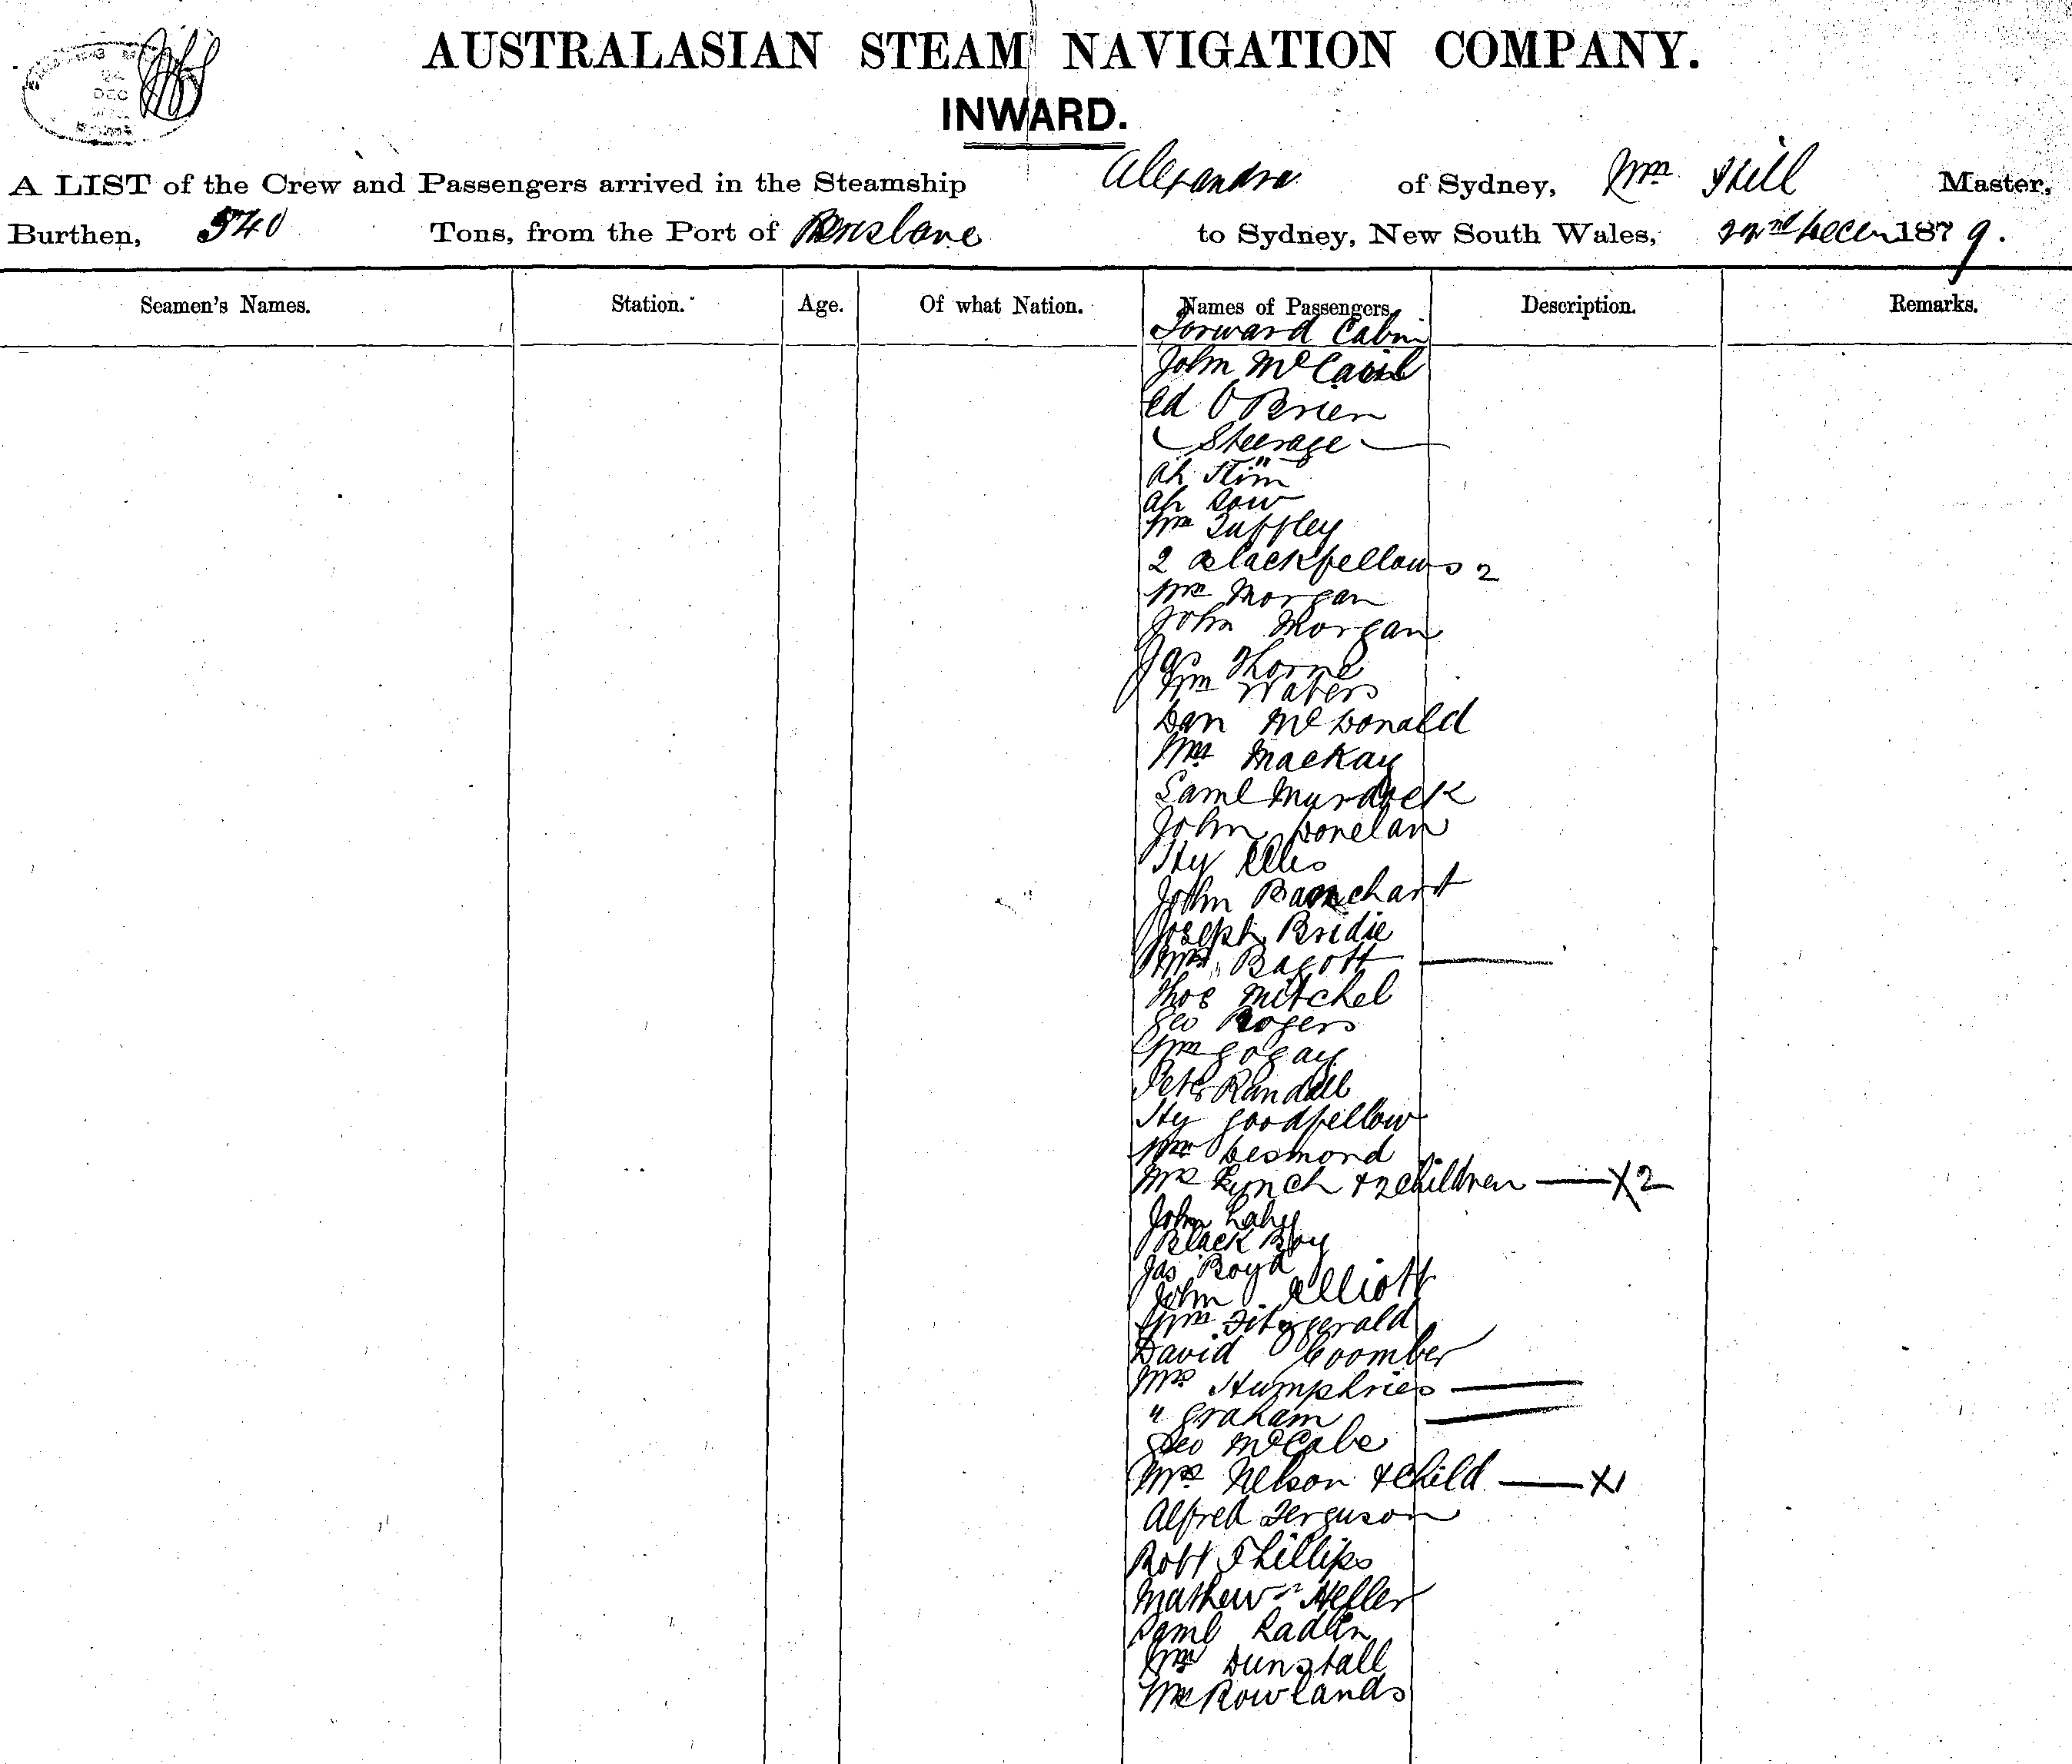 AUSTRALASIAN STEAM NAVIGATION COMPANY.
INWARD.
DEC
A LIST of the Crew and Passengers arrived in the Steamship Alexandra of Sydney, Wm Hill Master,
Burthen, 540 Tons, from the Port of Brisbane to Sydney, New South Wales, 22nd Decem 1879.
Seamen's Names. Station. Age. Of what Nation. Names of Passengers. Description. Remarks.
Forward Cabin
John McCaul
Ed O'Brien
Steerage
Ah
Ah Sow
Wm Tuffley
2 Blackfellows 2
Wm Morgan
John Morgan
Jas Thorne
Wm Waters
Dan McDonald
Mackay
Saml Murdock
John Donelan
Hy Ellis
John
Joseph Bridie
Mrs Bagott
Thos Mitchel
Geo Rogers
Wm Gogay
Peter Randall
Hy Goodfellow
Desmond
Mrs Lynch & 2 children X2
John Lahy
Black Boy
Jas Boyd
John Elliott
Wm Fitzgerald
David Coomber
Mrs Humphries
" Graham
Geo McCabe
Mrs Nelson & Child X1
Alfred Ferguson
Robt Phillips
Mathew Heffer
Saml Radlin
Dunstall
Rowlands